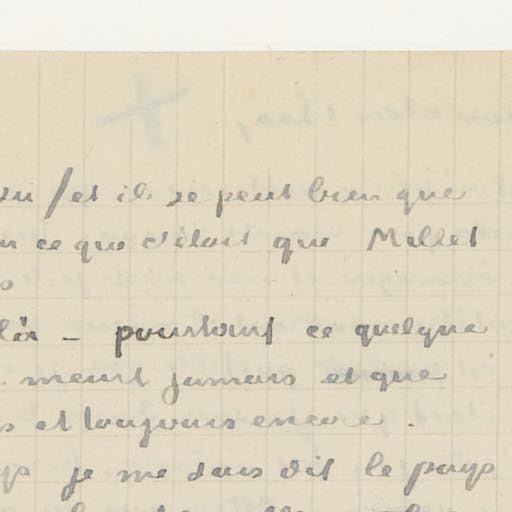 / et il se peut bien que
ce que c'était que Millet
là – pourtant ce quelque
meurt jamais et que
et toujours encore.
je me suis dit le pays